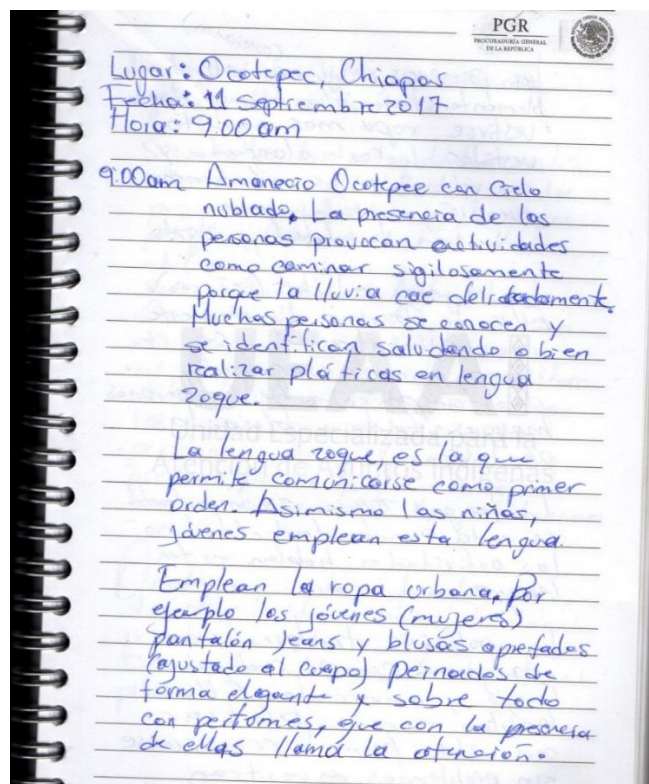 PGR
PROCURADURÍA GENERAL
DE LA REPÚBLICA
Lugar: Ocotepec, Chiapas
Fecha: 11 Septiembre 2017
Hora: 9:00 am
9:00am Amanecio Ocotepec con Cielo
nublado. La presencia de las
personas provocan actividades
como caminar sigilosamente
porque la lluvia cae
Muchas personas se conocen y
se identifican saludando o bien
realizar pláticas en lengua
zoque.
Unidad Especializada para la
Atención de Asuntos Indígenas
La lengua zoque, es la que
permite comunicarse como primer
orden. Asimismo las niñas,
jóvenes emplean esta lengua.
Emplean la ropa urbana, Por
ejemplo los jóvenes (mujeres)
pantalón jeans y blusas apretadas
(ajustado al cuerpo) Peinados de
forma elegante y sobre todo
con perfumes, que con la presencia
de ellas llama la atención.